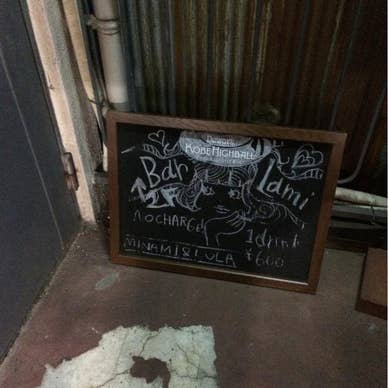 KOBE HIGHBALL
Bar Lami
2F
NO CHARGE
1drink
¥600
MINAMI & LULA